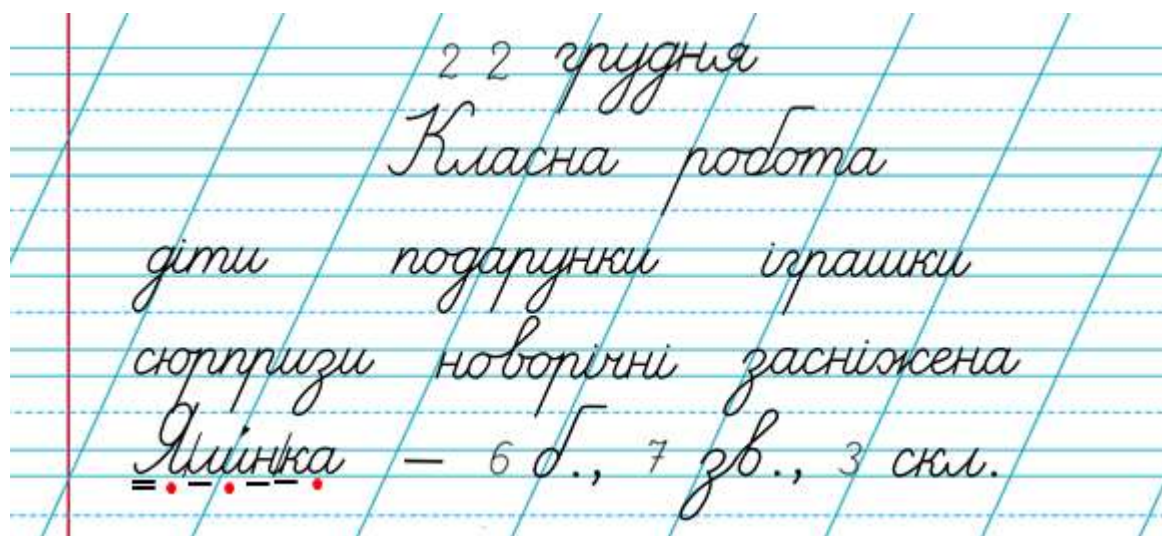 22 грудня
Класна робота
діти подарунки іграшки
сюрпризи новорічні засніжена
Я|ли́н|ка – 6 б., 7 зв., 3 скл.